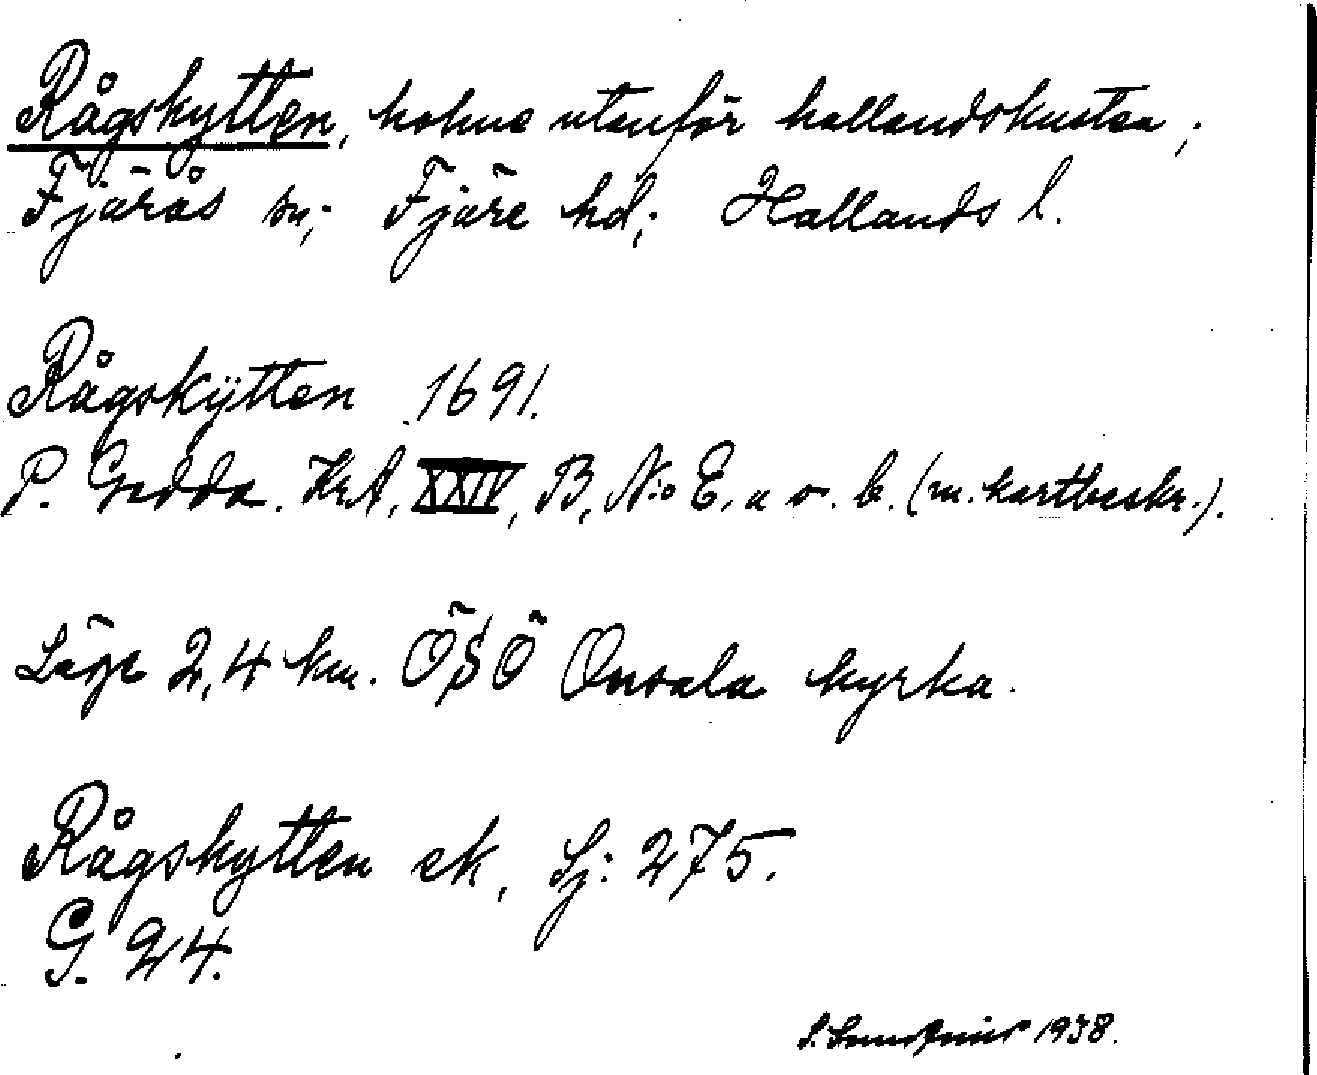 Rågskytten, holme utanför hallandskusten;
Fjärås sn; Fjäre hd; Hallands l.
Rågskÿtten 1691.
P. Gedda. KrA, XXIV, B, N:o E. a o. b. (m. kartbeskr.).
Läge 2,4 km. ÖSÖ Onsala kyrka.
Rågskytten ek, Sj: 275.
G. 24.
1938.